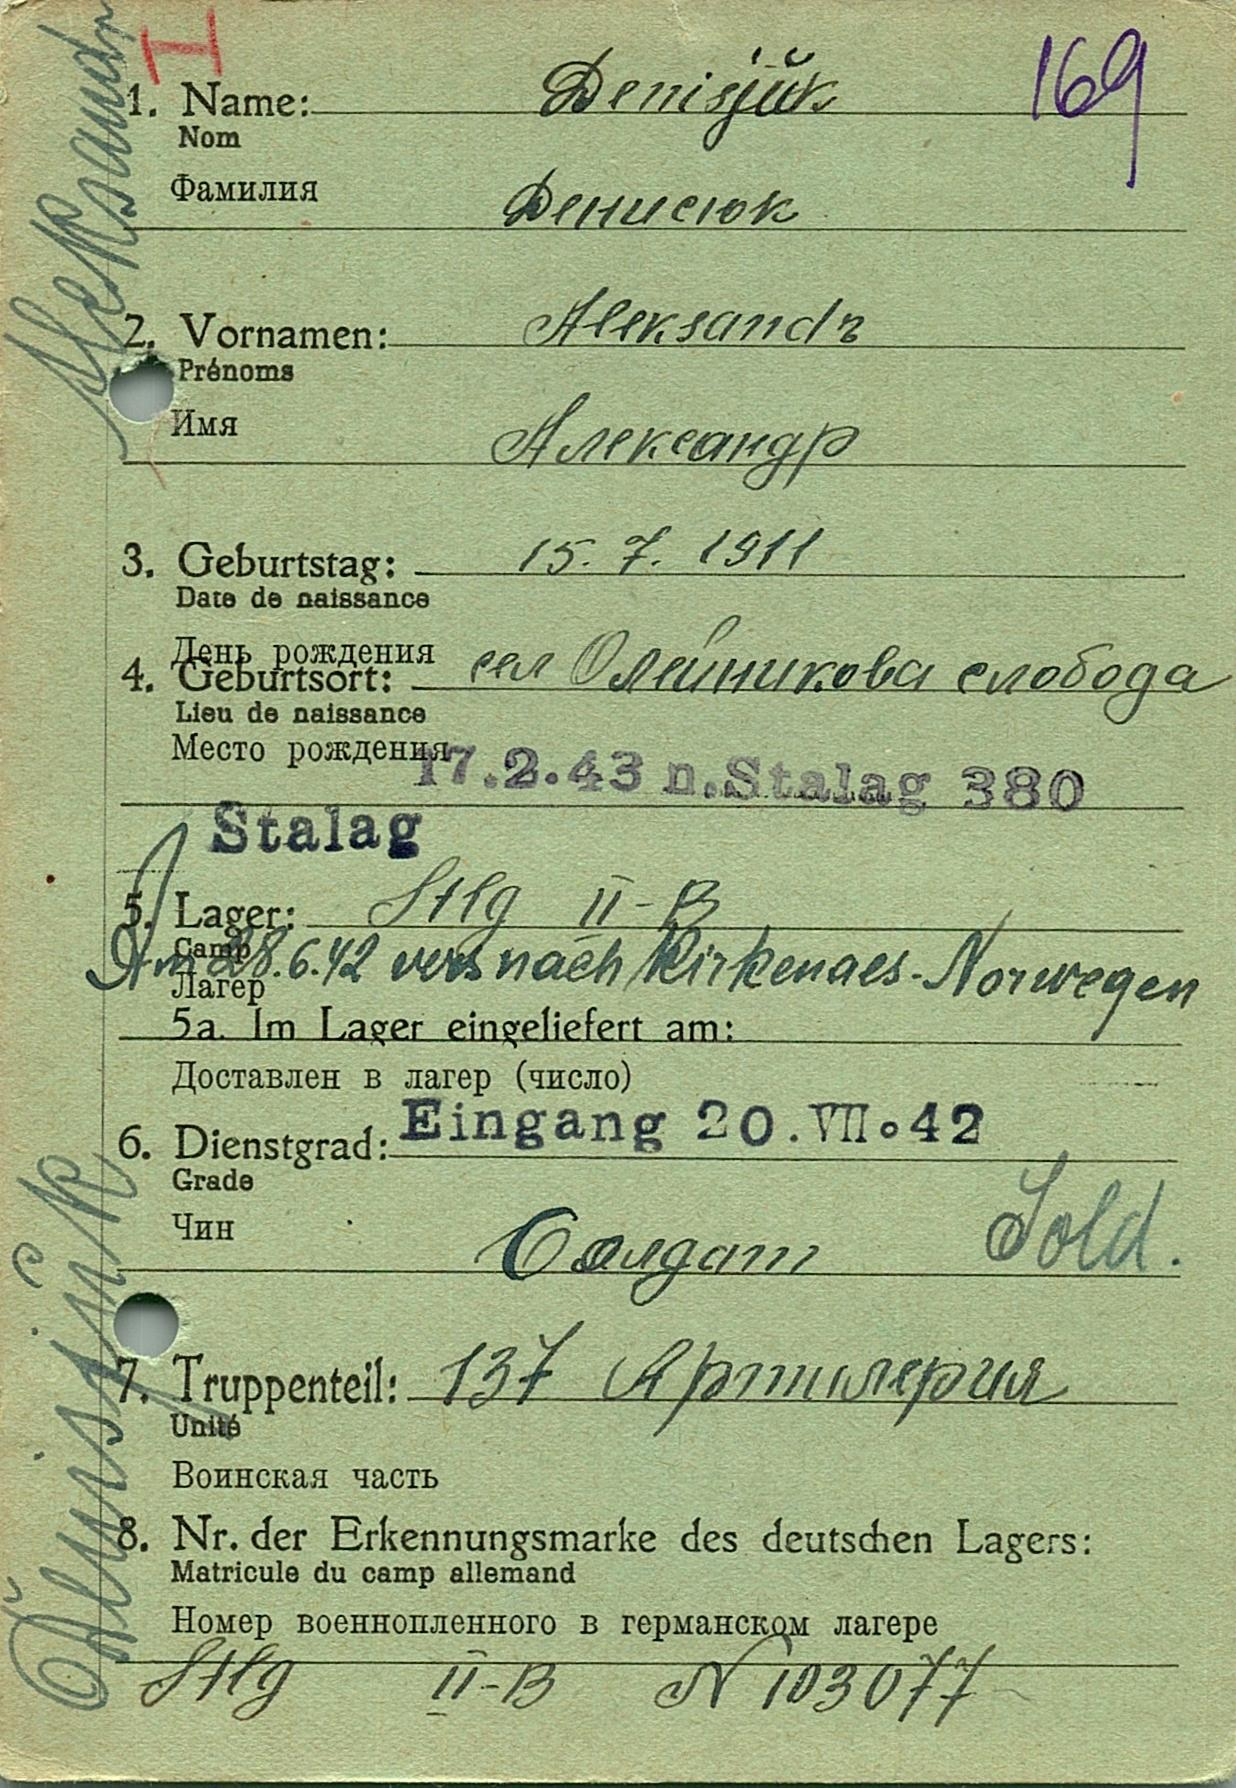 I
169
1. Name: Denisjŭk
Nom
Фамилия Денисюк
2. Vornamen: Aleksandr
Prénoms
Имя Александр
3. Geburtstag: 15. 7. 1911
Date de naissance
День рождения
4. Geburtsort: сел Олейникова слобода
Lieu de naissance
Место рождения
17.2.43 n. Stalag 380
Stalag
5. Lager: Stlg II-B
Camp
Am 28.6.42 vers nach Kirkenaes-Norwegen
Лагер
5a. Im Lager eingeliefert am:
Доставлен в лагер (число)
Eingang 20.VII.42
6. Dienstgrad:
Grade
Чин Солдат Sold.
7. Truppenteil: 137 Артилерия
Unité
Воинская часть
8. Nr. der Erkennungsmarke des deutschen Lagers:
Matricule du camp allemand
Номер военнопленного в германском лагере
Stlg II-B N 103077
Aleksandr